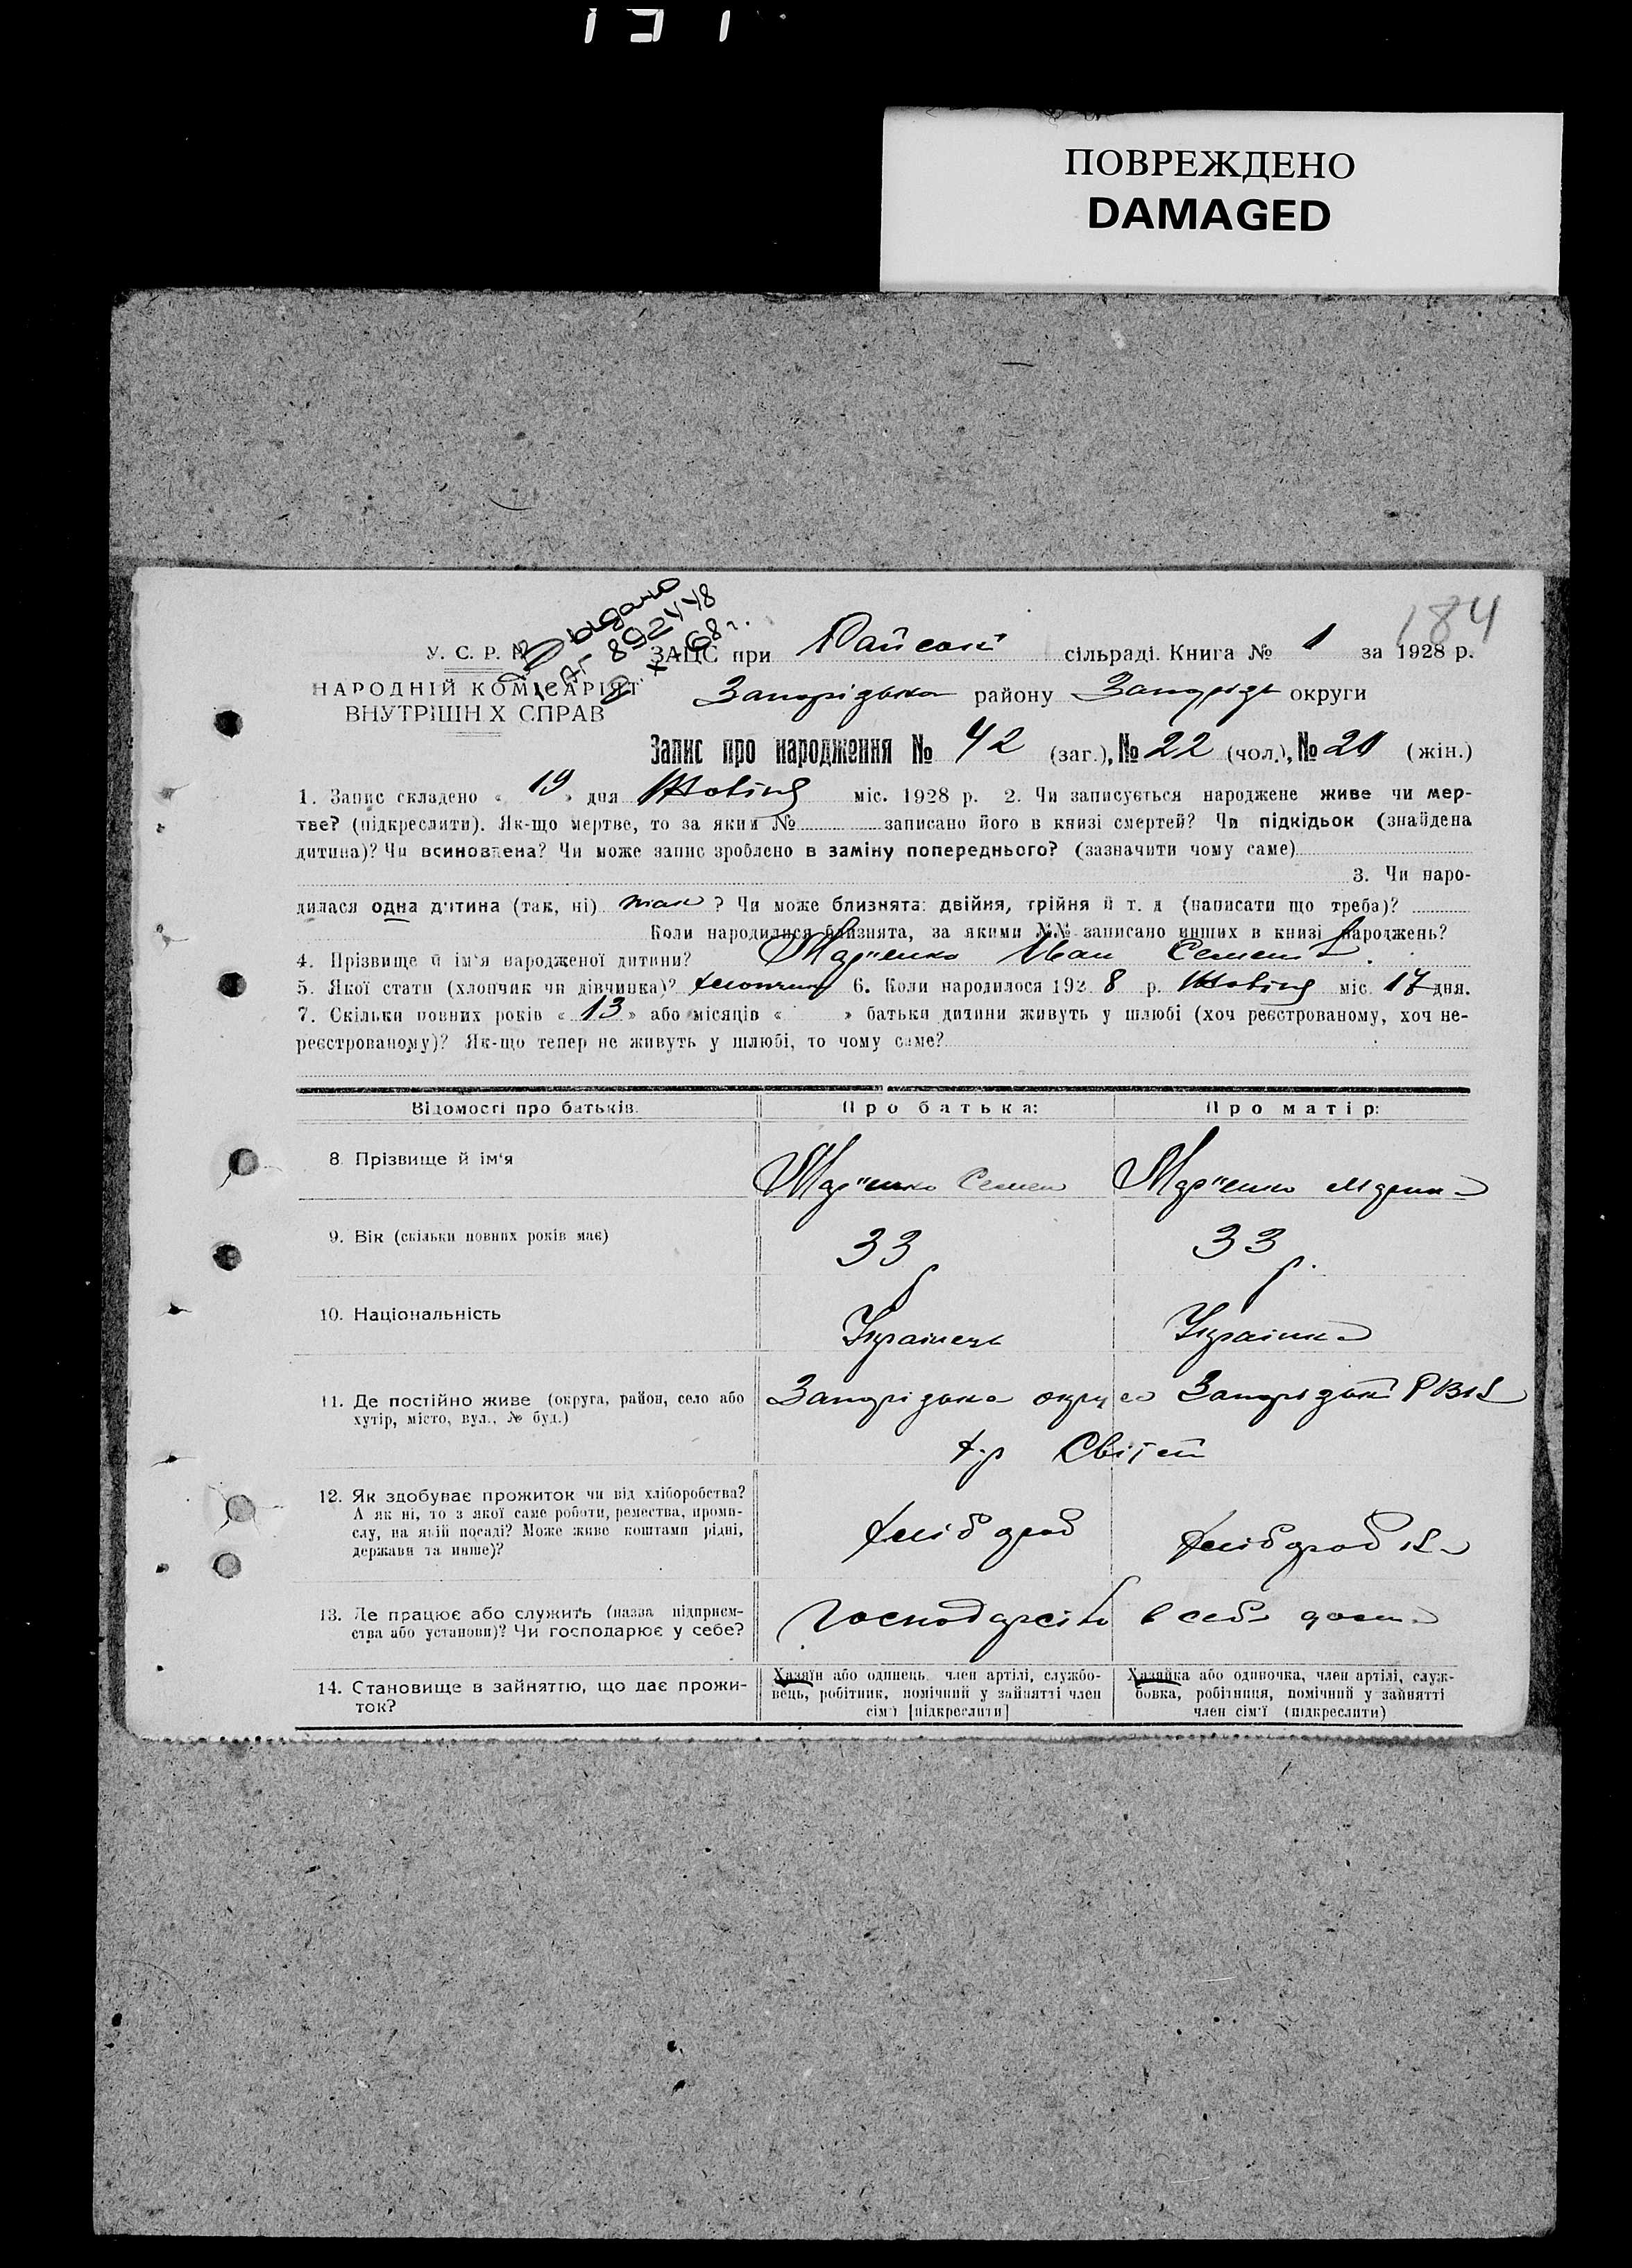 ПОВРЕЖДЕНО
DAMAGED
184
Выдано
892448
У. С. Р. Р.
ЗАЦС при Райській сільраді. Книга № 1 за 1928 р.
НАРОДНІЙ КОМІСАРІЯТ
ВНУТРІШН Х СПРАВ
району округи
Запис про народження № 42 (заг.), № 22 (чол.), № 20 (жін.)
1. Запис складено « 19 » дня Жовтня міс. 1928 р. 2. Чи записується народжене живе чи мер-
тве? (підкреслити). Як-що мертве, то за яким № записано його в книзі смертей? Чи підкідьок (знайдена
дитина)? Чи всиновлена? Чи може запис зроблено в заміну попереднього? (зазначити чому саме)
3. Чи наро-
дилася одна дитина (так, ні) так ? Чи може близнята: двійня, трійня й т. д (написати що треба)?
Коли народилися близнята, за якими №№ записано инших в книзі народжень?
4. Прізвище й ім'я народженої дитини? Мар'енко Иван Семенів.
5. Якої стати (хлопчик чи дівчинка)? хлопчик 6. Коли народилося 192 8 р. Жовтня міс. 17 дня.
7. Скільки повних років « 13 » або місяців « » батьки дитини живуть у шлюбі (хоч реєстрованому, хоч не-
реєстрованому)? Як-що тепер не живуть у шлюбі, то чому саме?
Відомості про батьків. Про батька: Про матір:
8. Прізвище й ім'я Мар'енко Семен Мар'енко Марина
9. Вік (скільки повних років має) 33 р. 33 р.
10. Національність Українець Українка
11. Де постійно живе (округа, район, село або Запорізька округа Запорізький РВК
хутір, місто, вул., № буд.)
х-р
12. Як здобуває прожиток чи від хліборобства? хлібороб хліборобка
А як ні, то з якої саме роботи, ремества, проми-
слу, на якій посаді? Може живе коштами рідні,
держави та инше)?
13. Де працює або служить (назва підприєм-
ства або установи)? Чи господарює у себе? в себе дома
14. Становище в зайняттю, що дає прожи-
ток?
Хазяїн або одинець, член артілі, службо-
вець, робітник, помічний у зайнятті член
сім'ї [підкреслити]
Хазяйка або одиночка, член артілі, служ-
бовка, робітниця, помічний у зайнятті
член сім'ї (підкреслити)